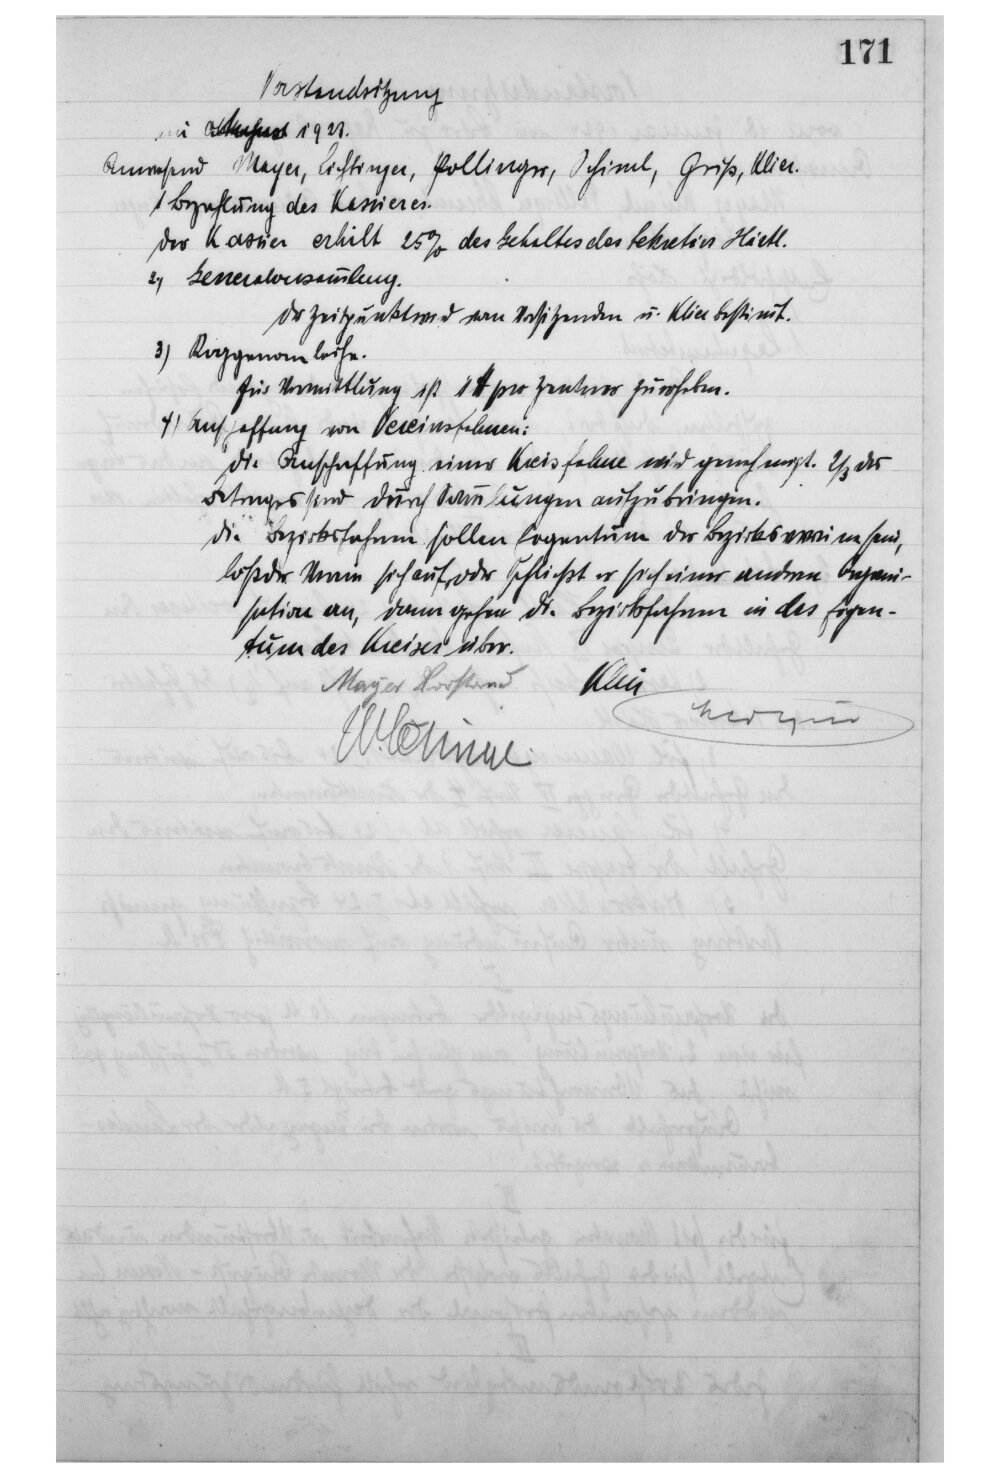 171
Vorstandsitzung
im August 1923.
Anwesend Mayer, Lichtinger, Pollinger, Schiml, Griß, Klier.
1 Bezahlung des Kassieres.
Der Kassier erhält 25% des Gehaltes des Sekretärs Hiertl.
2) Generalversam̄lung.
Der Zeitpunkt wird vom Vorsitzenden u. Klier bestim̄t.
3) Roggenanleihe.
Für Vermittlung ist 1 M pro Zentner zu erheben.
4) Anschaffung von Vereinsfahnen:
Die Anschaffung einer Kreisfahne wird genehmigt. 2/3 des
Betrages sind durch Sam̄lungen aufzubringen.
Die Bezirksfahnen sollen Eigentum der Bezirksvereine sein,
löst der Verein sich auf, oder schließt er sich einer anderen Organi-
sation an, dann gehen die Bezirksfahnen in das Eigen-
tum des Kreises über.
Mayer Vorstand Klier